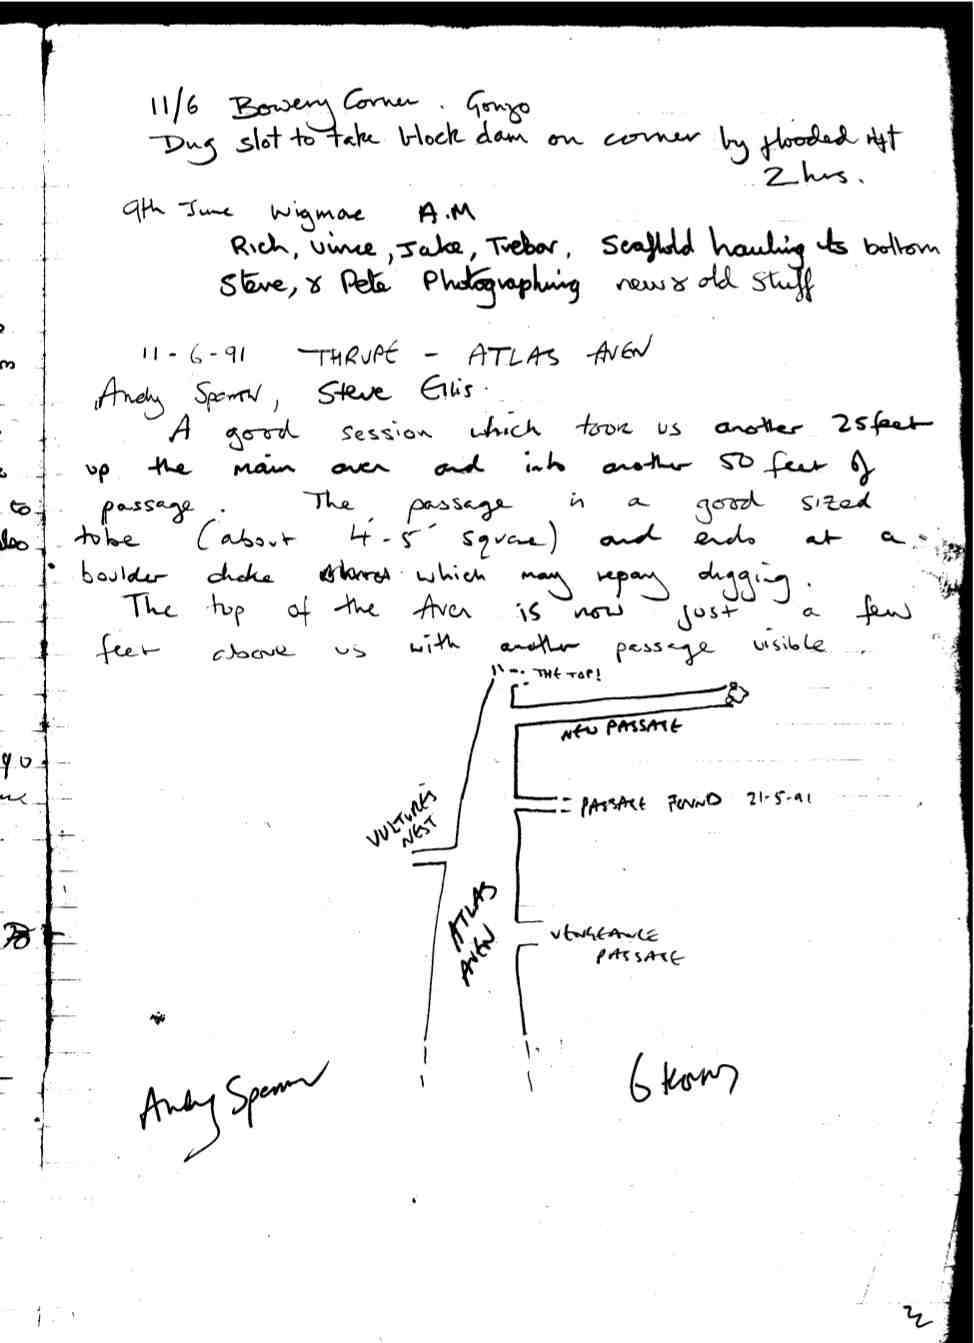 11/6 Bowery Corner. Gonzo
Dug slot to take block dam on corner by flooded rift
2 hrs.
9th June Wigmore A.M
Rich, Vince, Jake, Trebor, Scaffold hauling to bottom
Steve, & Pete Photographing new & old stuff
11-6-91 THRUPE - ATLAS AVEN
Andy Sparrow, Steve Ellis.
A good session which took us another 25 feet
up the main aven and into another 50 feet of
passage. The passage is a good sized
tube (about 4-5' square) and ends at a
boulder choke which may repay digging.
The top of the Aven is now just a few
feet above us with another passage visible.
THE TOP!
NEW PASSAGE
PASSAGE FOUND 21-5-91
VULTURES
NEST
ATLAS
AVEN
VENGEANCE
PASSAGE
Andy Sparrow
6 Hours
to